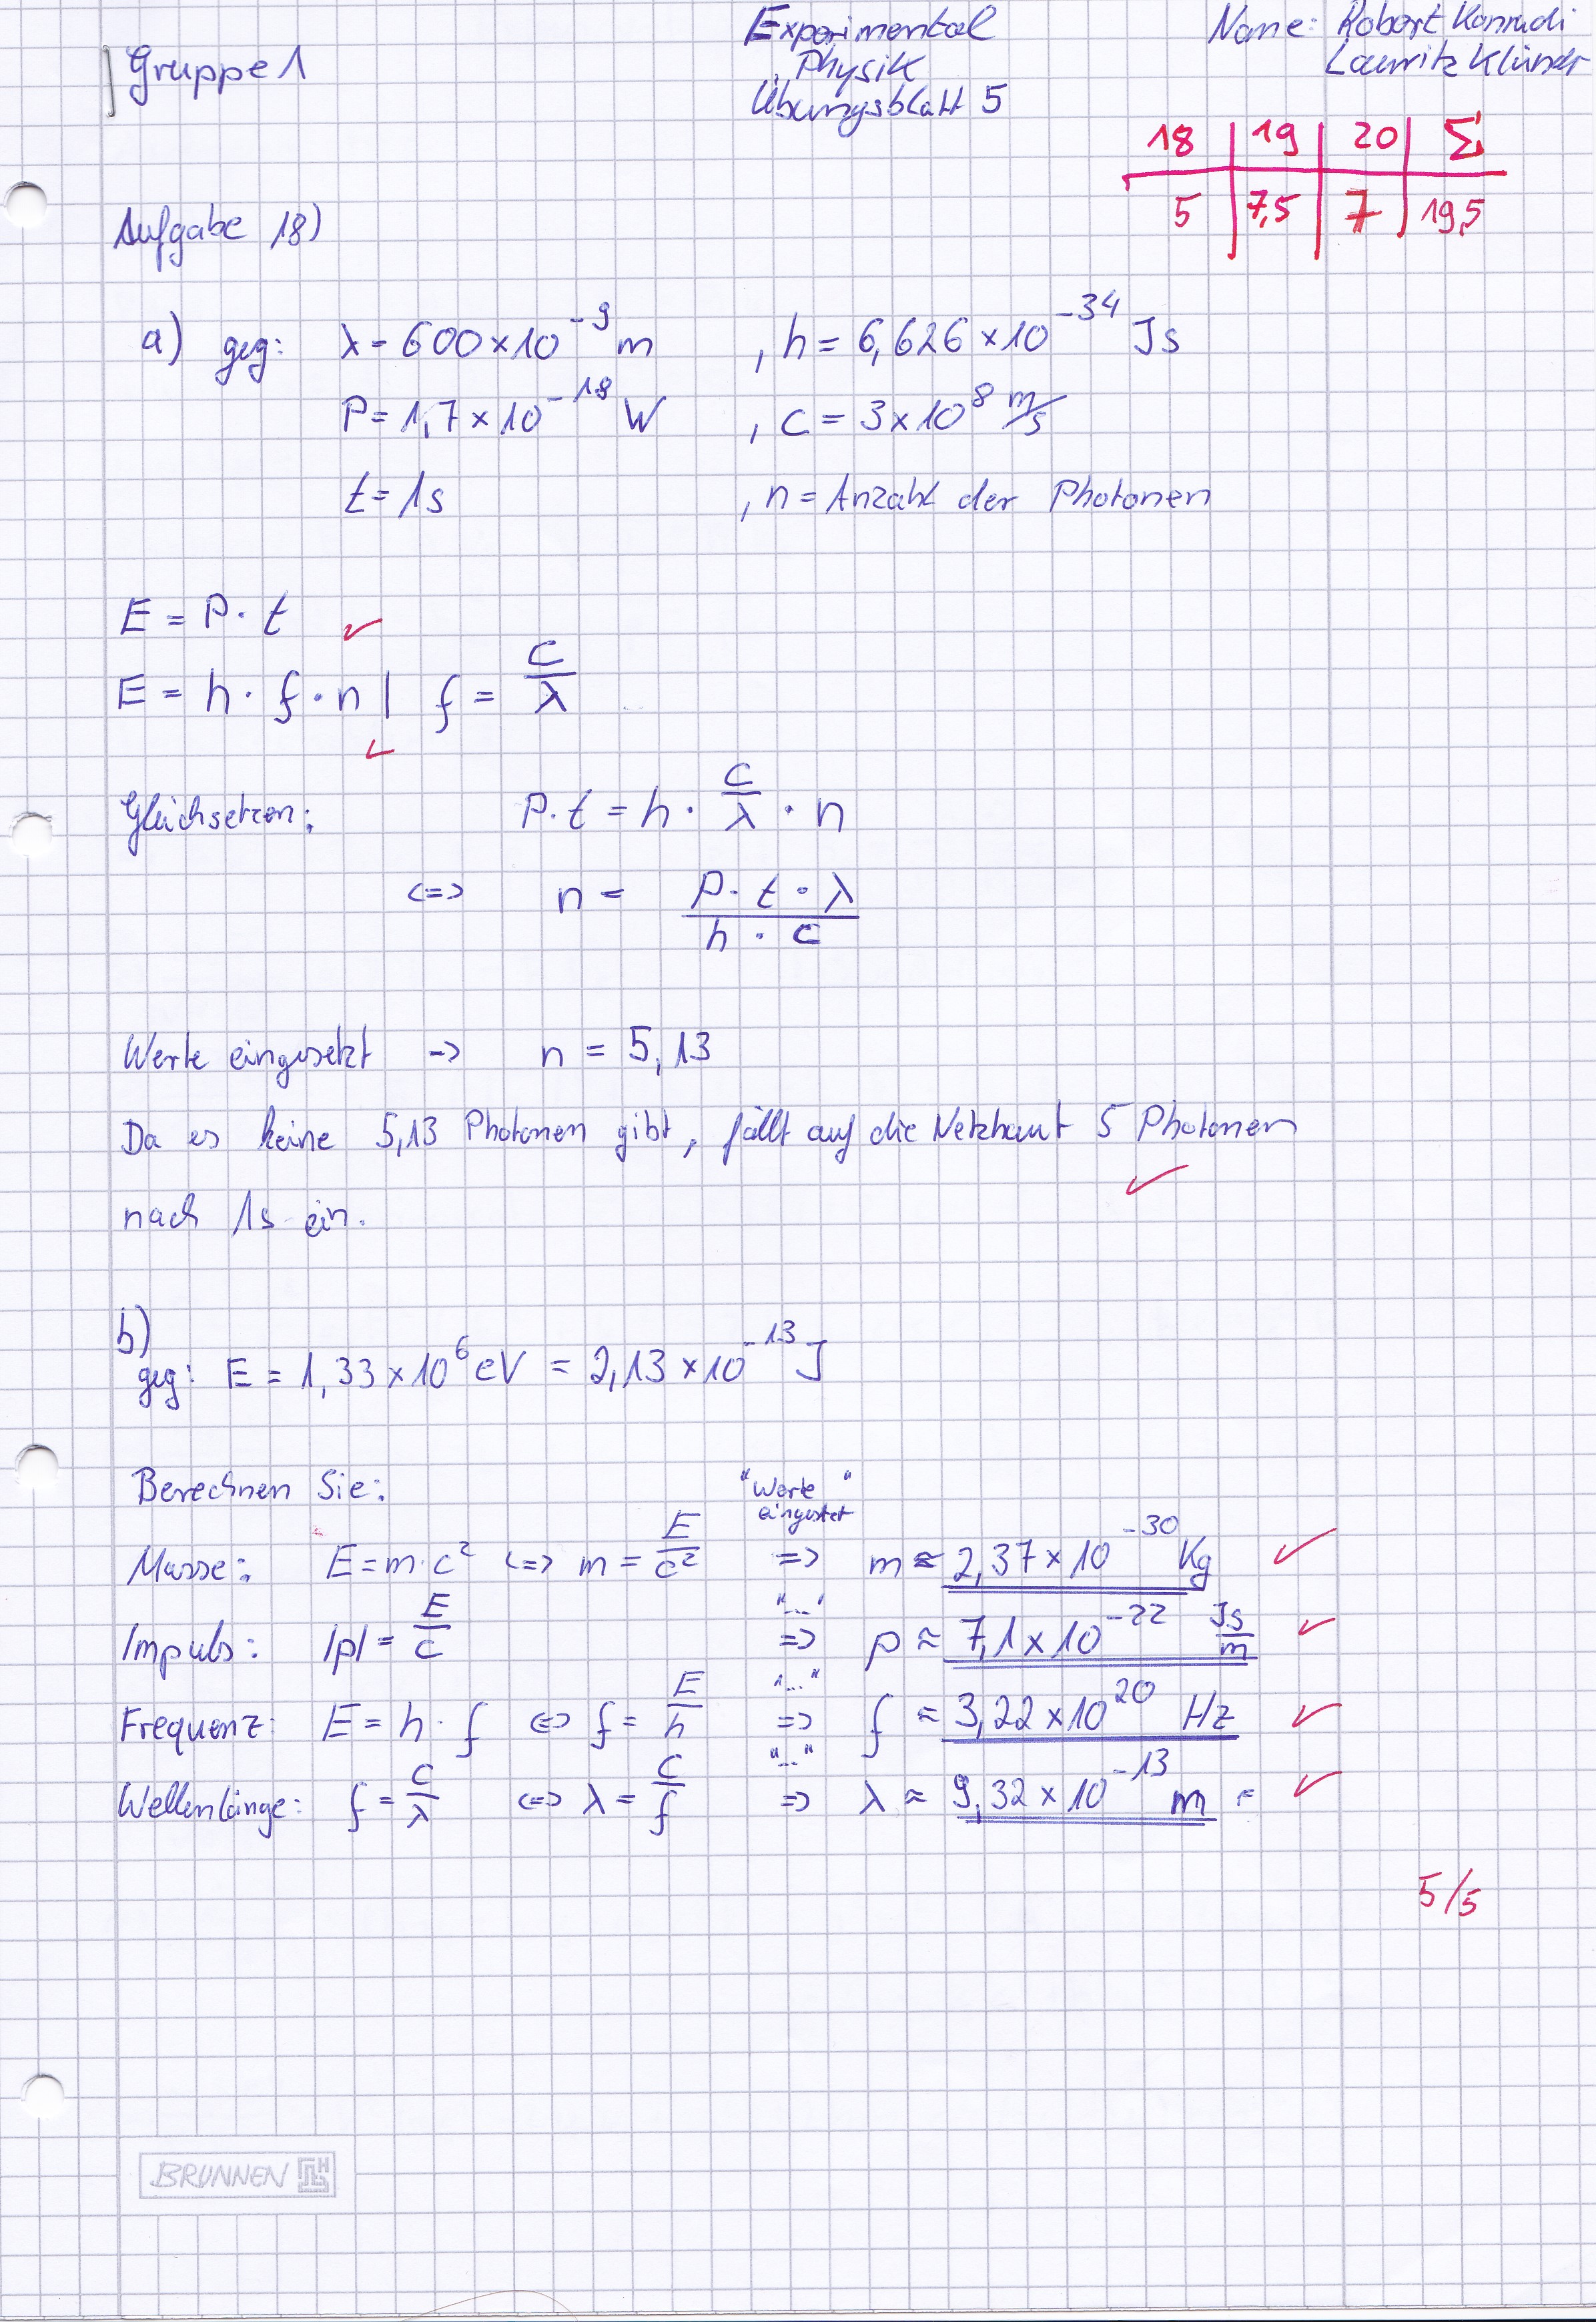 Gruppe 1
Experimental
Physik
Übungsblatt 5
Name: Robert Konradi
Lauritz Klünder
18 | 19 | 20 | Σ
5 | 7,5 | 7 | 19,5
Aufgabe 18)
a) geg: λ = 600 × 10^-9 m , h = 6,626 × 10^-34 Js
P = 1,7 × 10^-18 W , c = 3 × 10^8 m/s
t = 1s , n = Anzahl der Photonen
E = P · t ✓
E = h · f · n | f = c/λ
✓
Gleichsetzen: P · t = h · c/λ · n
<=> n = (P · t · λ)/(h · c)
Werte eingesetzt -> n = 5,13
Da es keine 5,13 Photonen gibt, fällt auf die Netzhaut 5 Photonen
✓
nach 1s ein.
b)
geg: E = 1,33 × 10^6 eV = 2,13 × 10^-13 J
Berechnen Sie: "Werte eingesetzt"
Masse: E = m · c² <=> m = E/c² => m ≈ 2,37 × 10^-30 Kg ✓
Impuls: |p| = E/c "..." => p ≈ 7,1 × 10^-22 Js/m ✓
Frequenz: E = h · f <=> f = E/h "..." => f ≈ 3,22 × 10^20 Hz ✓
Wellenlänge: f = c/λ <=> λ = c/f "..." => λ ≈ 9,32 × 10^-13 m = ✓
5/5
BRUNNEN